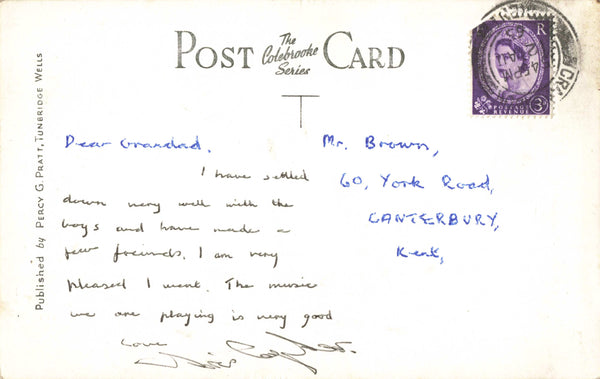 POST The Colebrooke Series CARD
Published by PERCY G. PRATT, TUNBRIDGE WELLS
Dear Grandad,
I have settled
down very well with the
boys and have made a
few freinds. I am very
pleased I went. The music
we are playing is very good
Love
Mr. Brown,
60, York Road,
CANTERBURY,
Kent,
E R
POSTAGE
REVENUE
3D